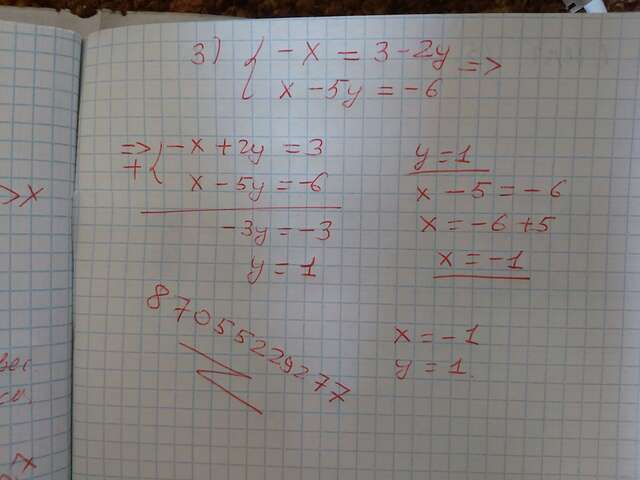 3) { -x = 3-2y =>
x - 5y = -6
=> + { -x + 2y = 3
x - 5y = -6
-3y = -3
y = 1
y = 1
x - 5 = -6
x = -6 + 5
x = -1
87055229277
x = -1
y = 1.
>x